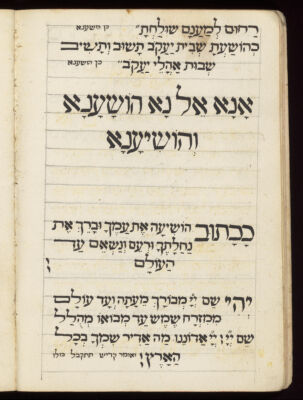 רחום למענם שולחת" כן הושענא
כהושעת שבית יעקב תשוב ותשיב
שבות אהלי יעקב" כן הושענא
אָנָא אֵל נָא הוֹשָׁעֲנָא
וְהוֹשִׁיעָנָא
ככתוב הושיעה את עמך וברך את
נחלתך ורעם ונשאם עד
העולם
יהי שם יי' מבורך מעתה ועד עולם
ממזרח שמש עד מבואו מהולל
שם יי' יי' אדוננו מה אדיר שמך בכל
הארץ ואומר קדיש תתקבל